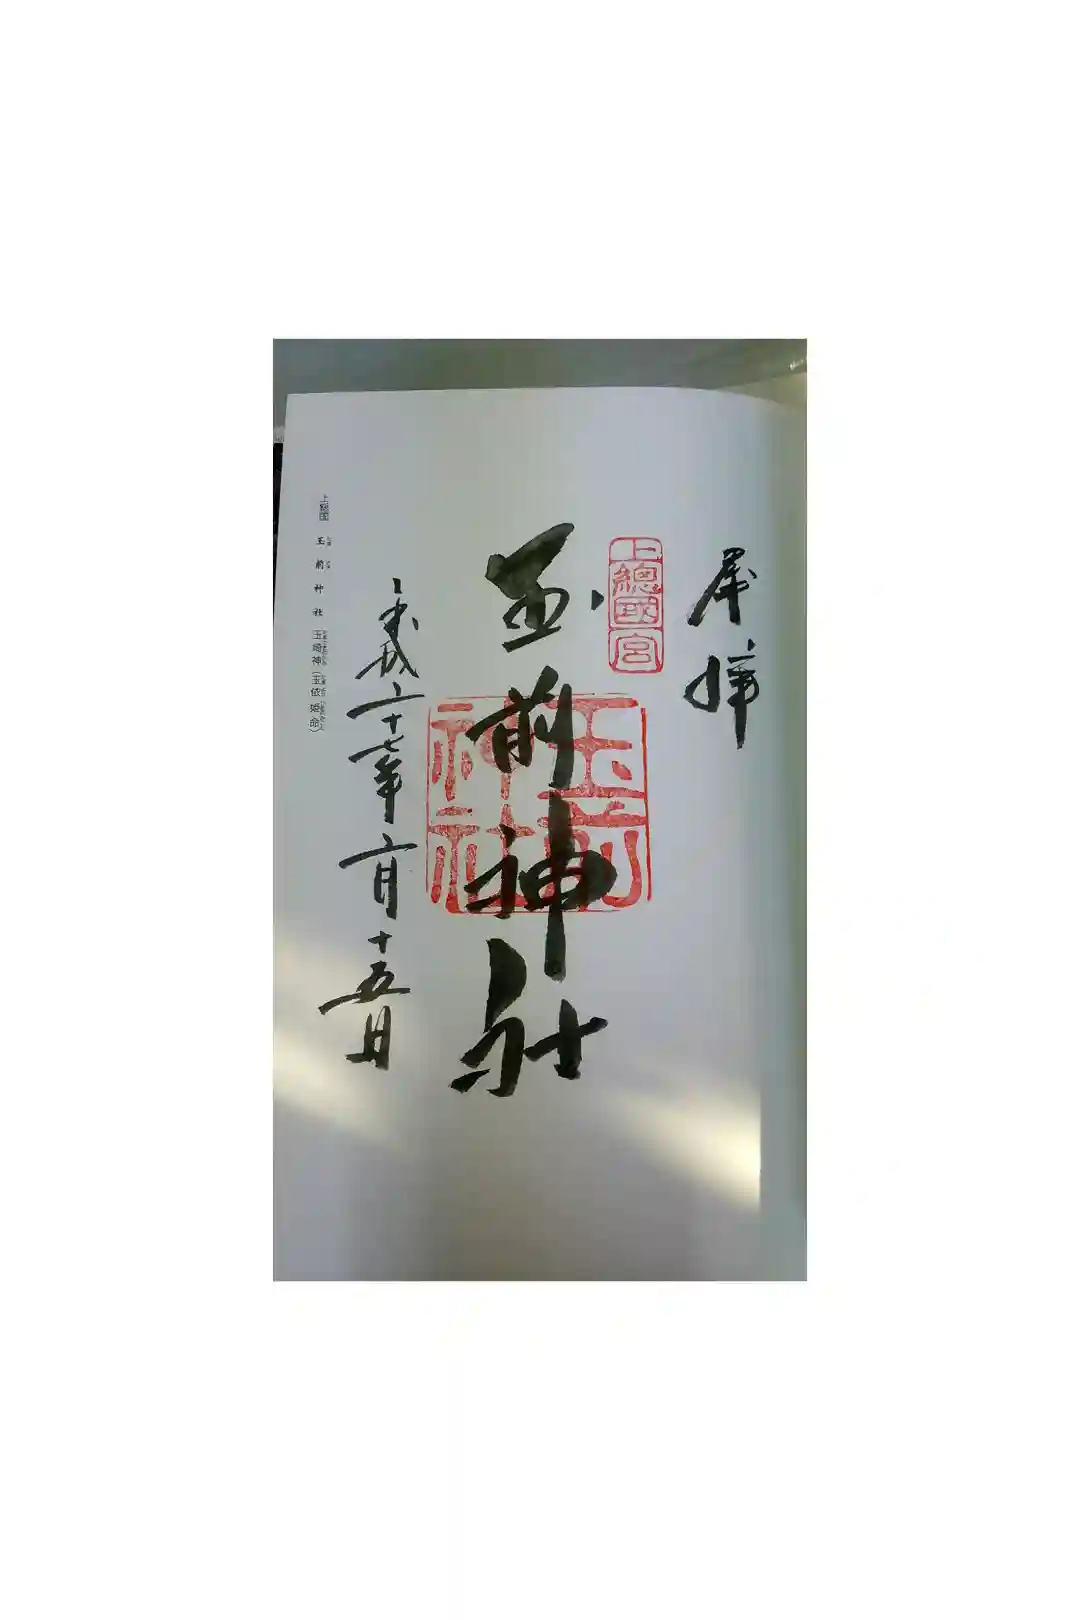 奉拝
上總國一宮
玉前神社
玉前神社
平成二十七年二月十五日
上総国 玉前神社 玉崎神(玉依姫命)